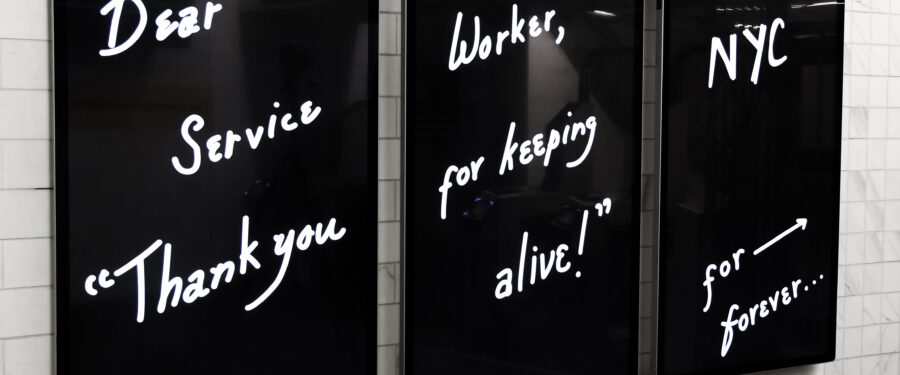 Dear
Service
Worker,
“Thank you
for keeping
NYC
alive!”
for →
forever...